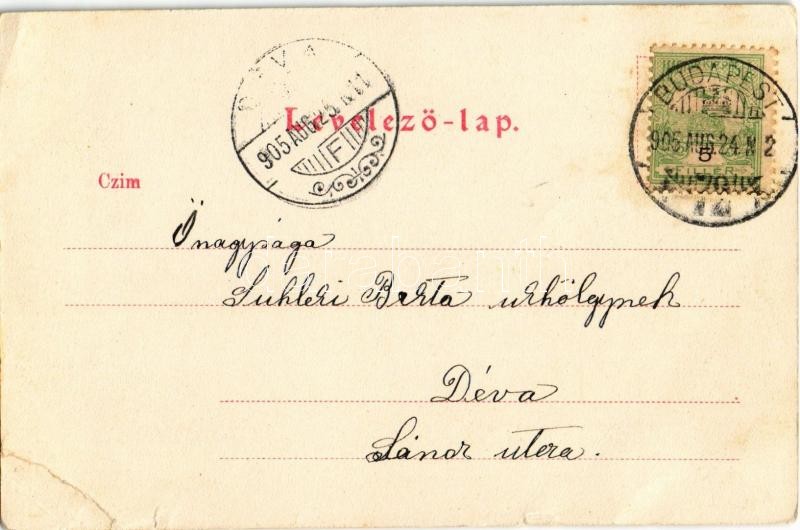 Levelező-lap.
905 AUG. 25. N 11
F
BUDAPEST
905 AUG. 24. N 2
5
FILLÉR
Czim
Őnagysága
Berta urhölgynek
Déva
utcza.